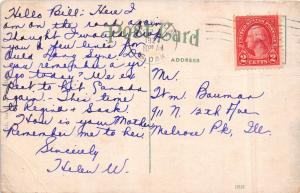 Hello Bill: Here I
am on the road again
Thought I would drop
you a few lines for
Quite
ago today? We ex
Pect to hit Canada
again. This time
to Regina Sask
How is your Mother
Remember me to her
Sincerely
Helen W.
Post Card
ADDRESS
Mr.
Wm. Bauman
911 N. 12th Ave
Melrose Pk, Ill.
2 CENTS 2